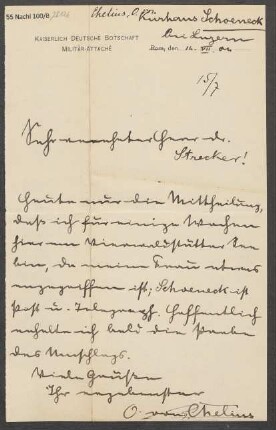 55 Nachl 100/B,
Chelius, O. von
Kurhaus Schoeneck
bei Luzern
KAISERLICH DEUTSCHE BOTSCHAFT
MILITÄR-ATTACHÉ
Rom, den 14. VII. 04
15/7
Sehr verehrter Herr Dr.
Strecker!
Heute nur die Mittheilung,
daß ich für einige Wochen
hier am Vierwaldstätter See
bin, da meine Frau etwas
angegriffen ist; Schoeneck ist
Post u. Telegraph. Hoffentlich
erhalte ich bald die Probe
des Umschlags.
Viele Grüße
Ihr ergebenster
O. von Chelius